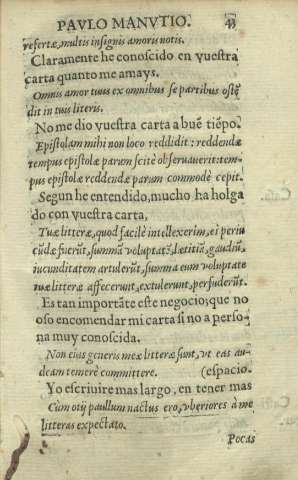 PAVLO MANVTIO. 43
refertæ, multis insignis amoris notis.
Claramente he conoscido en vuestra
carta quanto me amays.
Omnis amor tuus ex omnibus se partibus ostẽ
dit in tuis literis.
No me dio vuestra carta a buẽ tiẽpo.
Epistolam mihi non loco reddidit: reddendæ
tempus epistolæ parum scitè obseruauerit: tem-
pus epistolæ reddendæ parum commodè cepit.
Segun he entendido, mucho ha holga
do con vuestra carta,
Tuæ litteræ, quod facilè intellexerim, ei periu
cũdæ fuerũt, summã voluptatẽ, lætitiã, gaudiũ,
iucunditatem attulerũt, summa eum voluptate
tuæ litteræ affecerunt, extulerunt, perfuderũt.
Es tan importãte este negocio, que no
oso encomendar mi carta si no a perso-
na muy conoscida.
Non eius generis meæ litteræ sunt, vt eas au-
deam temerè committere. (espacio.
Yo escriuire mas largo, en tener mas
Cùm otij paullum nactus ero, vberiores à me
litteras expectato.
Pocas